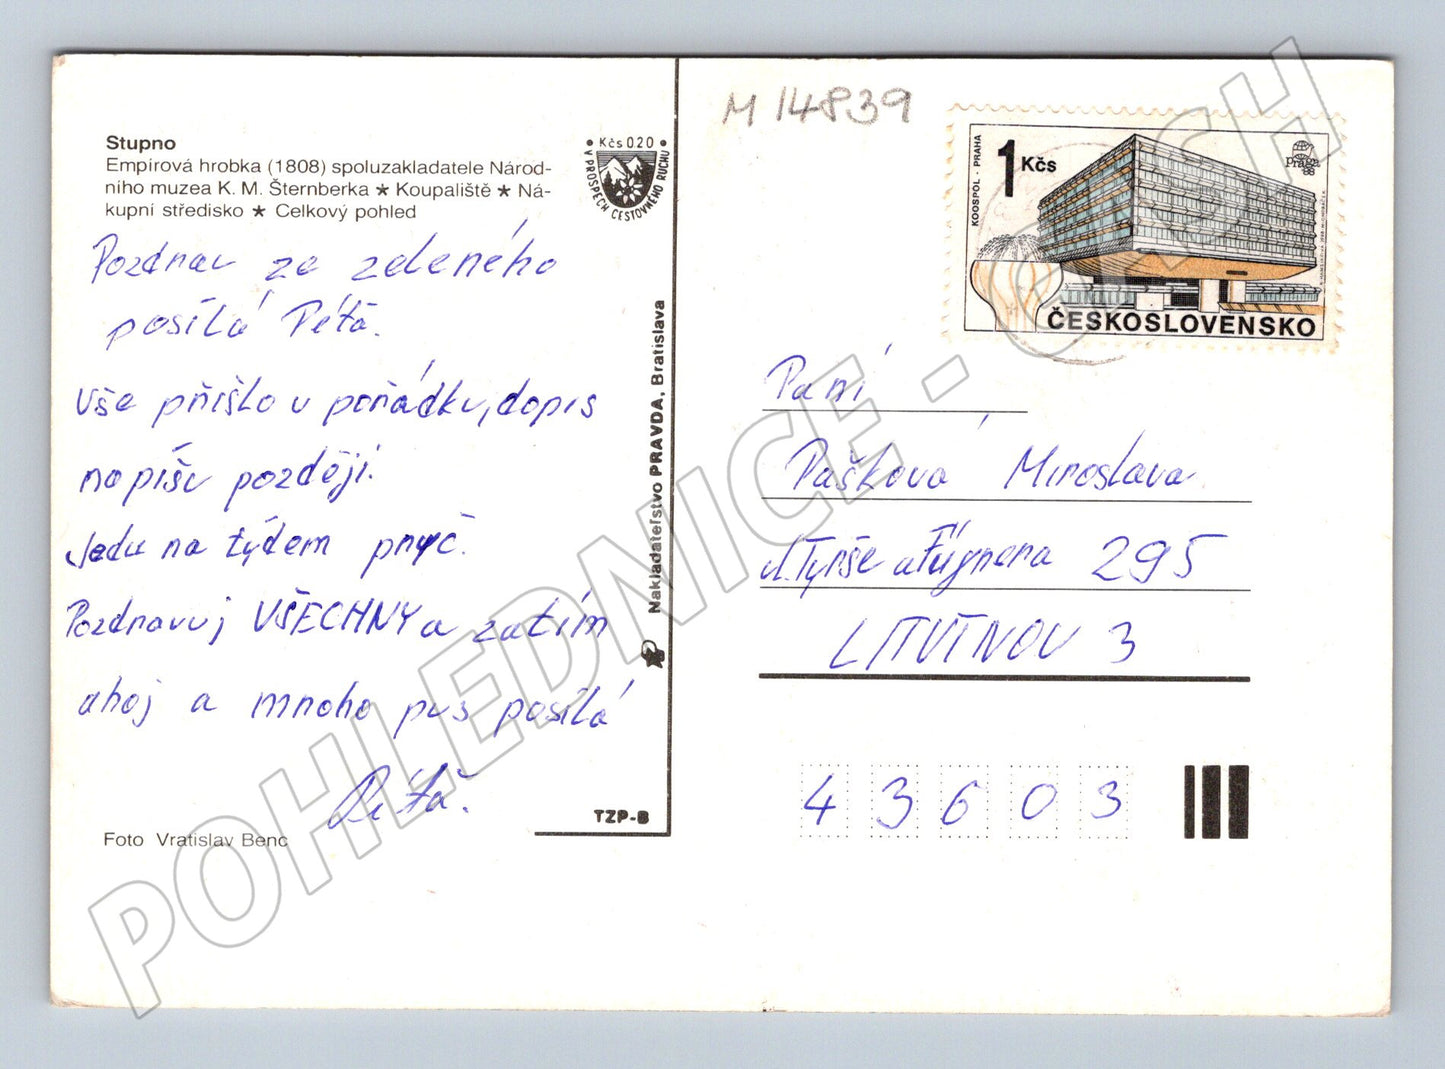 Stupno
Empírová hrobka (1808) spoluzakladatele Národ-
ního muzea K. M. Šternberka ★ Koupaliště ★ Ná-
kupní středisko ★ Celkový pohled
• Kčs 020 •
V PROSPĚCH CESTOVNÉHO RUCHU
Pozdrav ze zeleného
posílá Péťa.
Vše přišlo v pořádku, dopis
napíšu později.
Jedu na týdem pryč.
Pozdravuj VŠECHNY a zatím
ahoj a mnoho pus posílá
Péťa.
Foto Vratislav Benc
Nakladateľstvo PRAVDA, Bratislava
TZP-B
M 14839
KOOSPOL - PRAHA
1 Kčs
praga
88
ČESKOSLOVENSKO
Paní
Pašková Miroslava
ul. Tyrše a Fügnera 295
LITVÍNOV 3
43603
POHLEDNICE - CASH